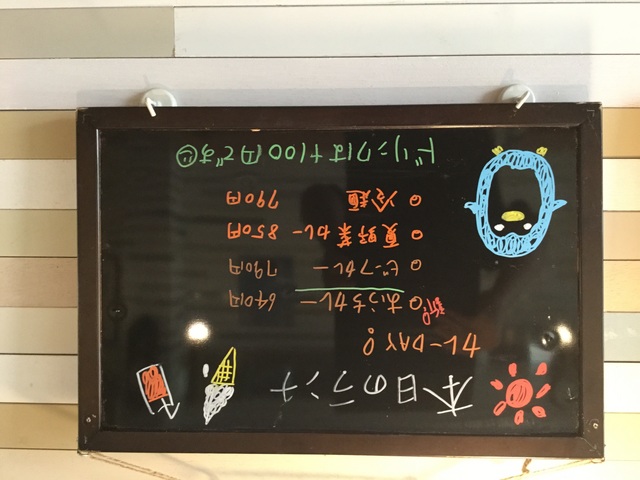 本日のランチ
カレーDAY!
新!
○おうちカレー 640円
○ビーフカレー 790円
○夏野菜カレー 850円
○冷麺 790円
ドリンクは+100円です